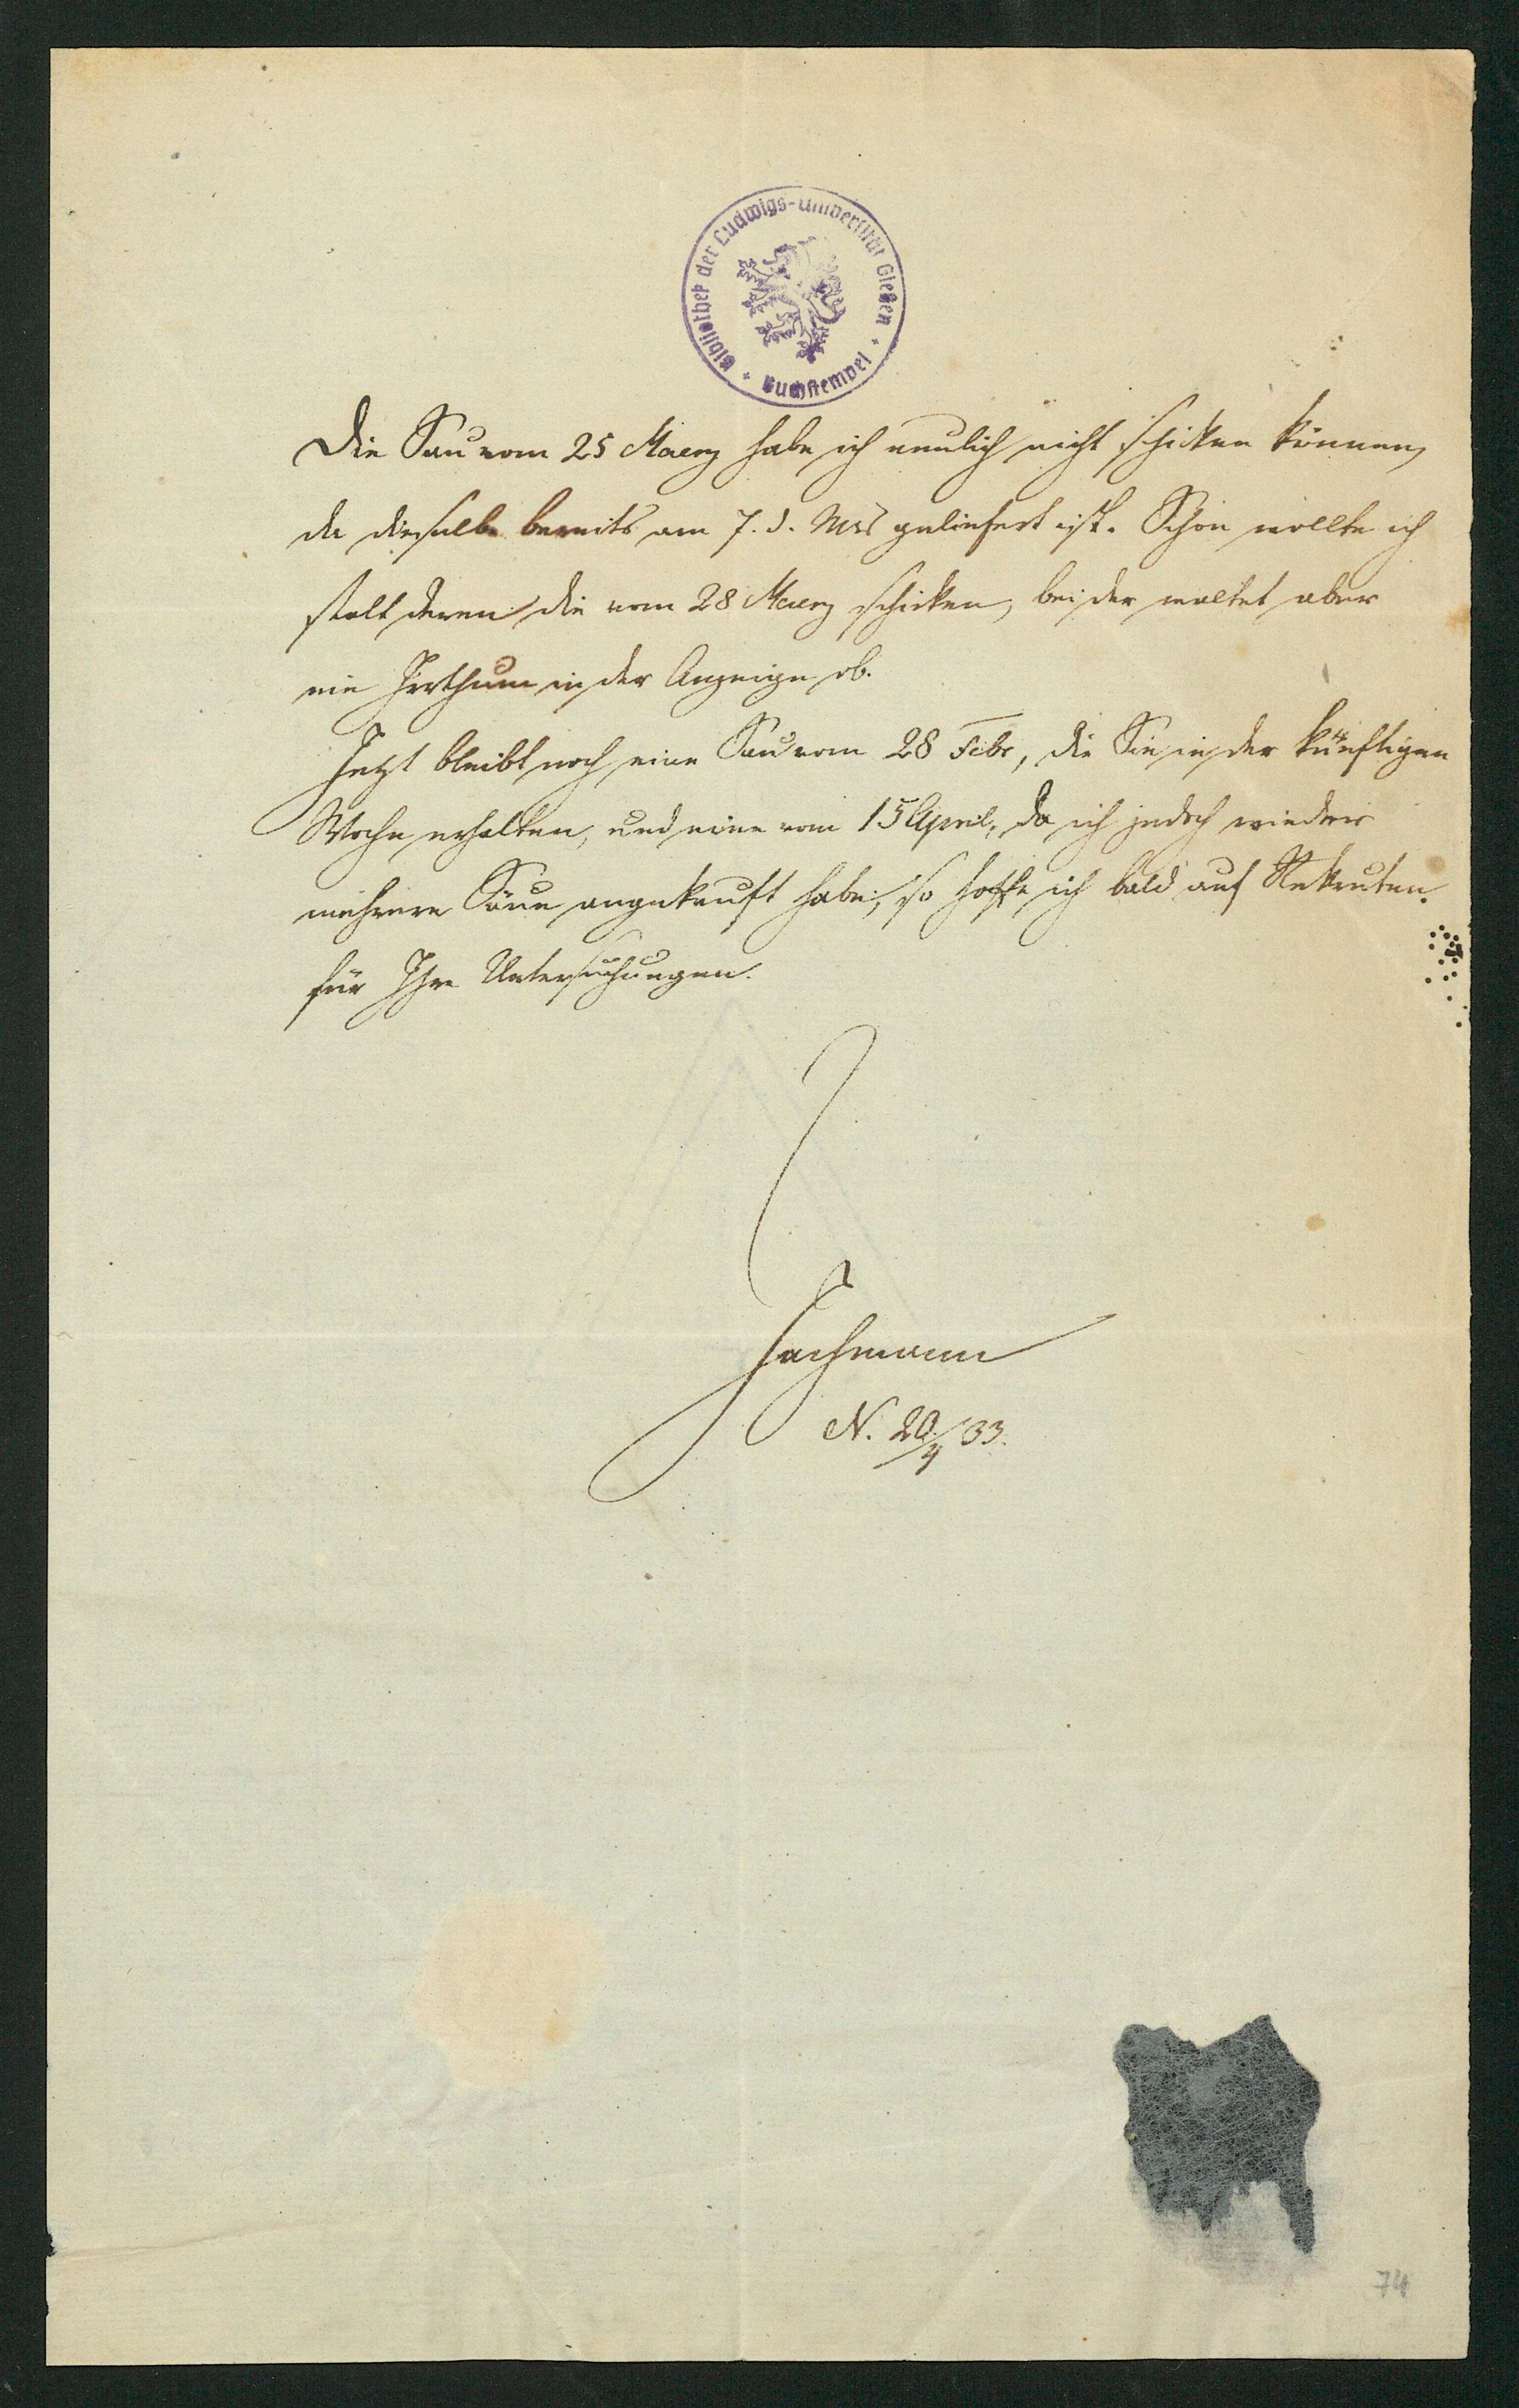 Bibliothek der Ludwigs-Universität Gießen
* Buchstempel *
Die Sau vom 25 Maerz habe ich neulich nicht schicken können,
da dieselbe bereits am 7. d. Mts geliefert ist. Schon wollte ich
statt deren die vom 28 Maerz schicken, bei der waltet aber
ein Irrthum in der Anzeige ob.
Jetzt bleibt noch eine Sau vom 28 Febr, die Sie in der künftigen
Woche erhalten, und eine vom 15 April, da ich jedoch wieder
mehrere Säue angekauft habe, so hoffe ich bald auf Rekruten
für Ihre Untersuchungen.
Jachmann
N. 20/4 33.
74